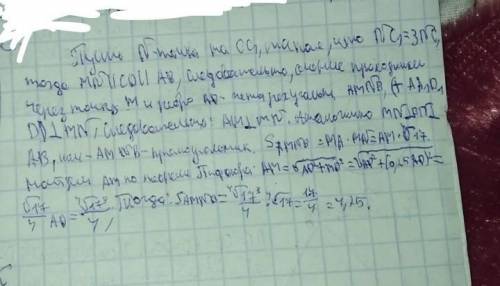 Пусть N-точка на CC₁, такая, что NC₁=3NC,
тогда MN||CD||AB, следовательно, сечение проходящее
через точку M и ребро AB - четырехугольник AMNB,
DD₁⊥MN, следовательно: AM⊥MN. Аналогично
AB, или - AMNB - прямоугольник. S_AMNB = MA·MN=AM·√17.
Найдём AM по теореме Пифагора: AM=√AD²+MD²=√AD²+(0,25AD)²=
√17/4 AD = ⁴√17³/4, Тогда: S_AMNB=⁴√17³/4·⁴√17=17/4=4,25.